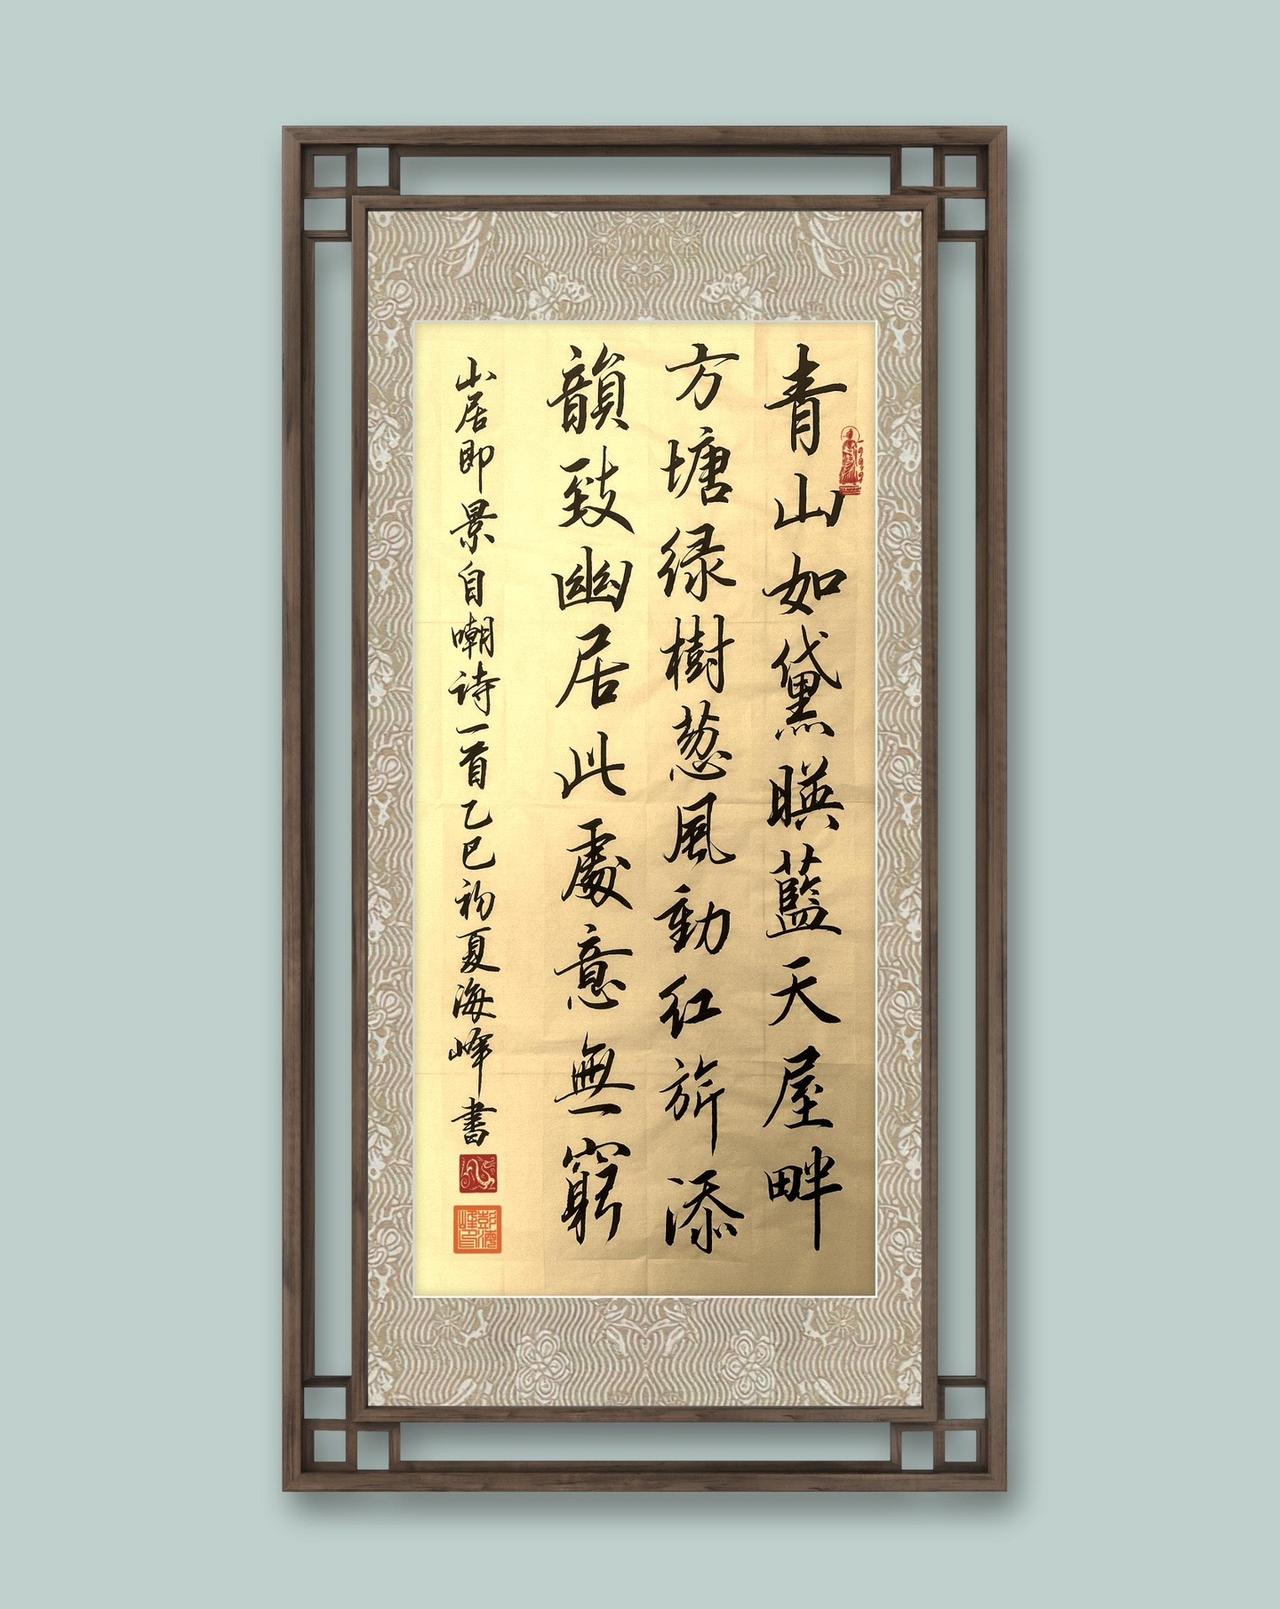 青山如黛暎藍天屋畔
方塘绿樹葱風動红旂添
韻致幽居此處意無窮
山居即景自嘲诗一首乙巳初夏海峰書